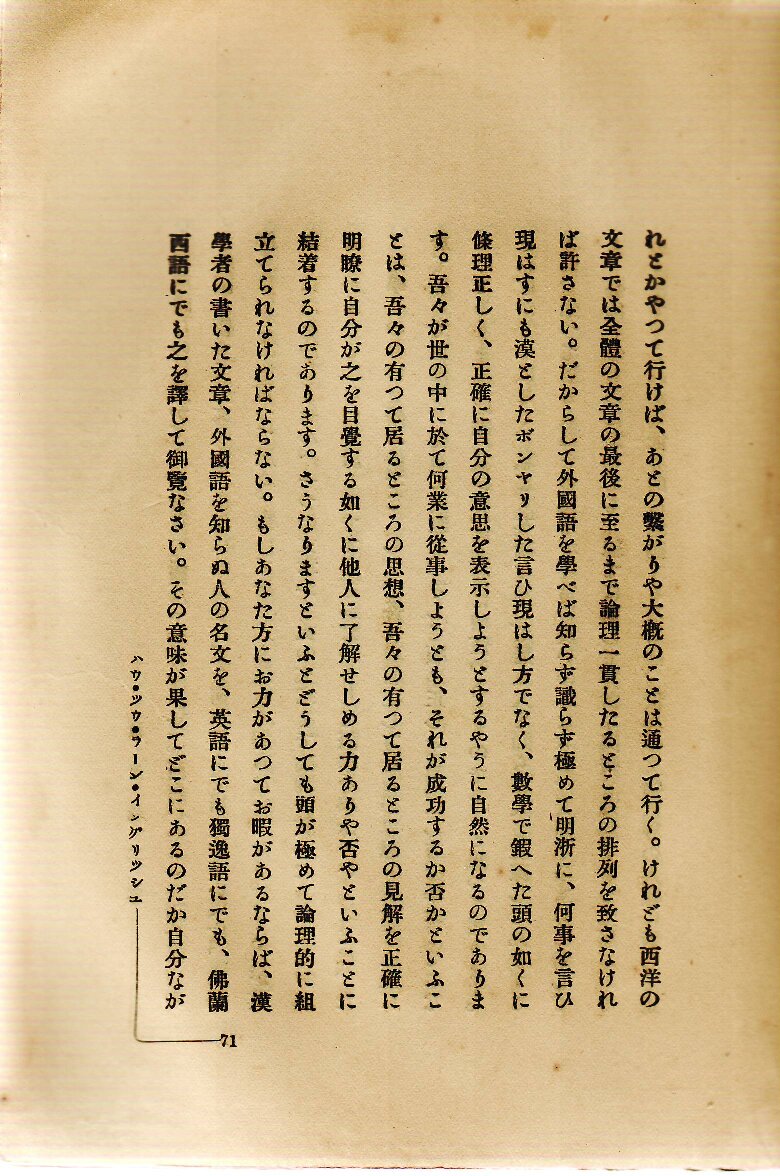 れとかやつて行けば、あとの繋がりや大概のことは通つて行く。けれども西洋の
文章では全體の文章の最後に至るまで論理一貫したるところの排列を致さなけれ
ば許さない。だからして外國語を學べば知らず識らず極めて明淅に、何事を言ひ
現はすにも漠としたボンヤリした言ひ現はし方でなく、數學で鍜へた頭の如くに
條理正しく、正確に自分の意思を表示しようとするやうに自然になるのでありま
す。吾々が世の中に於て何業に從事しようとも、それが成功するか否かといふこ
とは、吾々の有つて居るところの思想、吾々の有つて居るところの見解を正確に
明瞭に自分が之を目覺する如くに他人に了解せしめる力ありや否やといふことに
結着するのであります。さうなりますといふとどうしても頭が極めて論理的に組
立てられなければならない。もしあなた方にお力があつてお暇があるならば、漢
學者の書いた文章、外國語を知らぬ人の名文を、英語にでも獨逸語にでも、佛蘭
西語にでも之を譯して御覽なさい。その意味が果してどこにあるのだか自分なが
ハウ・ツウ・ラーン・イングリツシユ
71